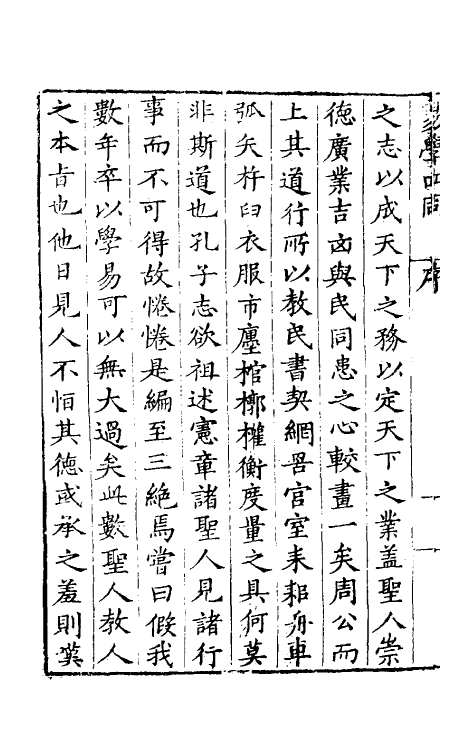 之志以成天下之務以定天下之業蓋聖人崇
德廣業吉凶與民同患之心較畫一矣周公而
上其道行所以教民書契網罟宮室耒耜舟車
弧矢杵臼衣服市廛棺槨權衡度量之具何莫
非斯道也孔子志欲祖述憲章諸聖人見諸行
事而不可得故惓惓是編至三絶焉嘗曰假我
數年卒以學易可以無大過矣此數聖人教人
之本旨也他日見人不恒其德或承之羞則葉